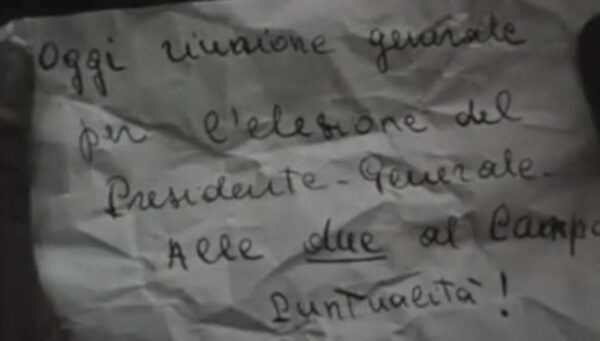 Oggi riunione generale
per l'elezione del
Presidente-Generale.
Alle due al Campo
Puntualità!